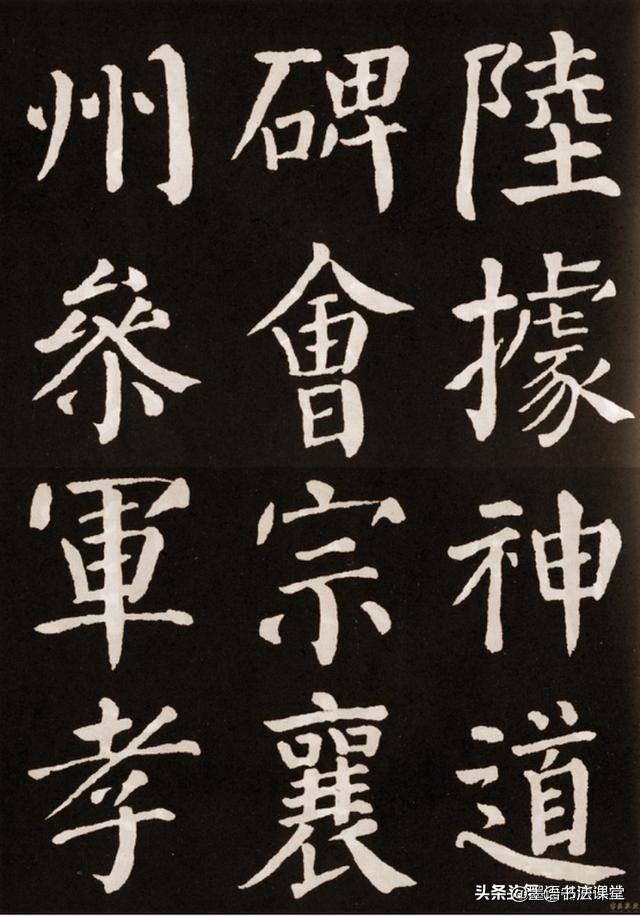 陸據神道
碑會宗襄
州參軍孝
头条@墨语书法课堂